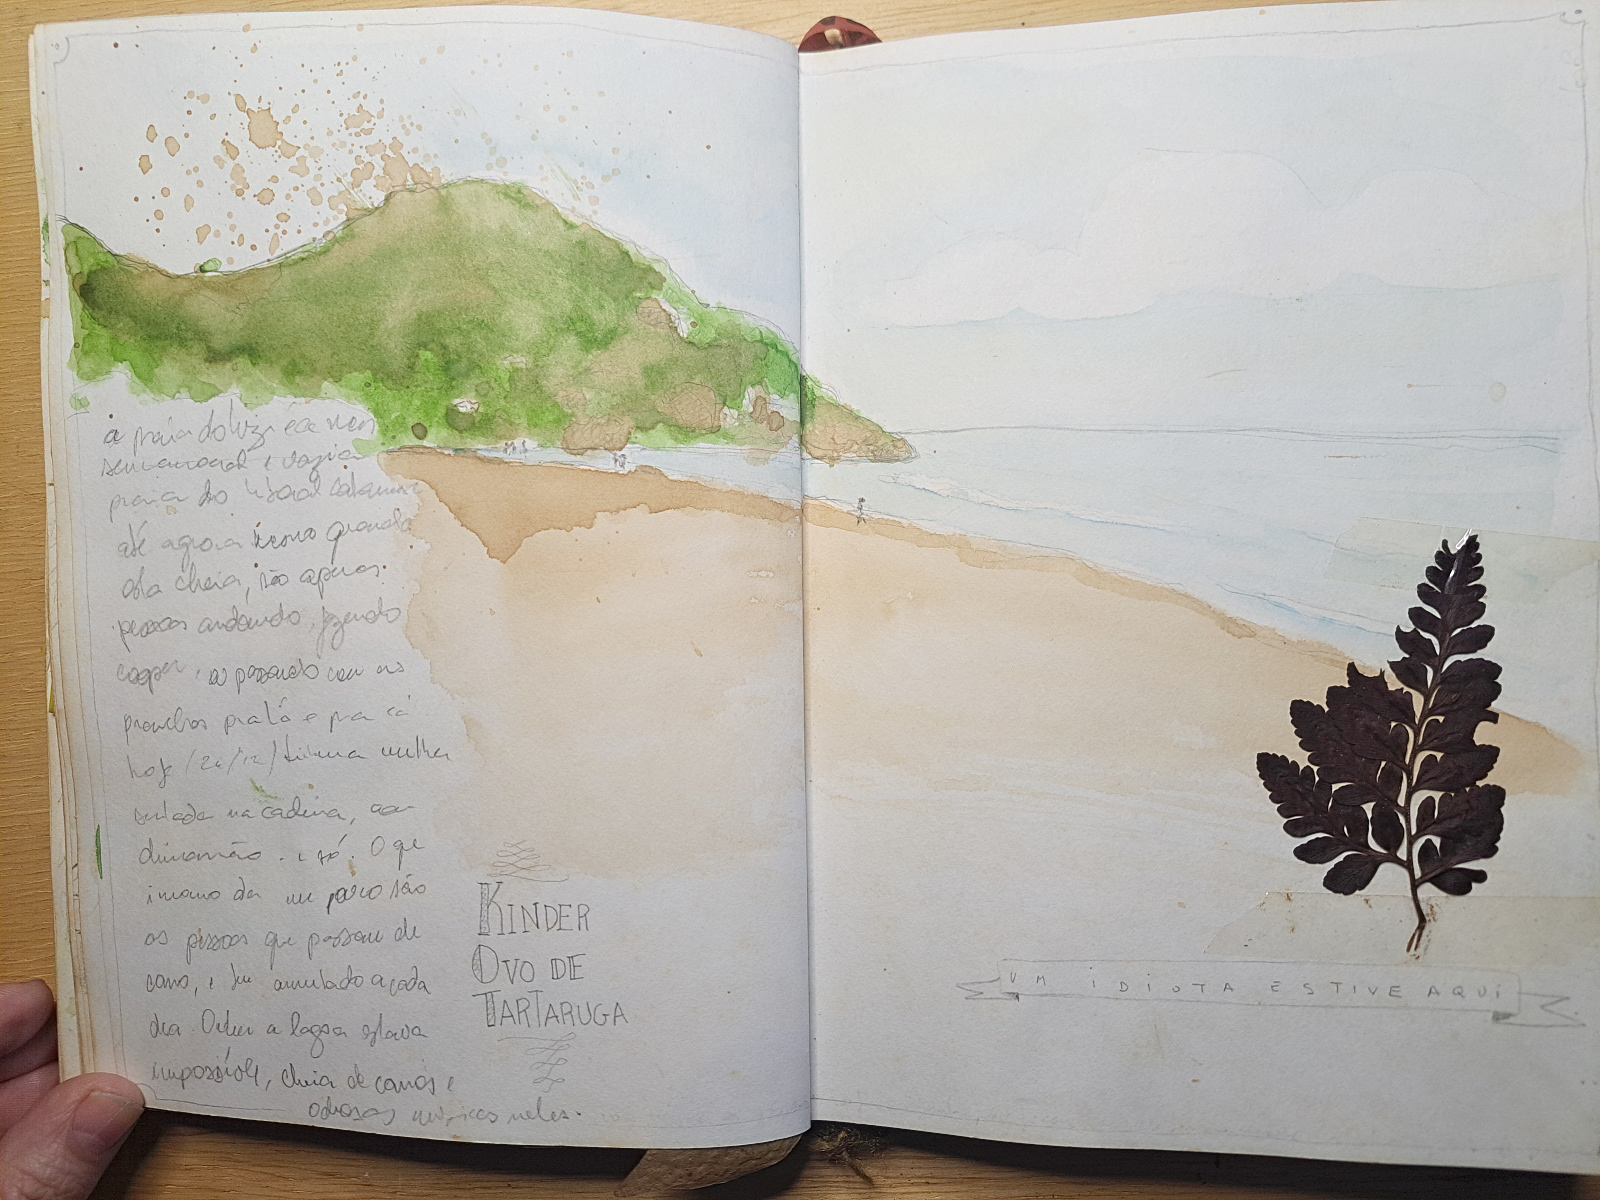 a praia do luz é a mais
sensacional e vazia
praia do litoral catarinense
até agora. mesmo quando
ela cheia, são apenas
pessoas andando, fazendo
cooper, ou passando com os
pra lá e pra cá
hoje (26/12) tinha uma mulher
sentada na cadeira,
e só. O que
um pouco são
as pessoas que passam de
carro, e tem aumentado a cada
dia. Ontem a lagoa estava
impossível, cheia de carros e
odiosas músicas neles.
KINDER
OVO DE
TARTARUGA
UM IDIOTA ESTIVE AQUI